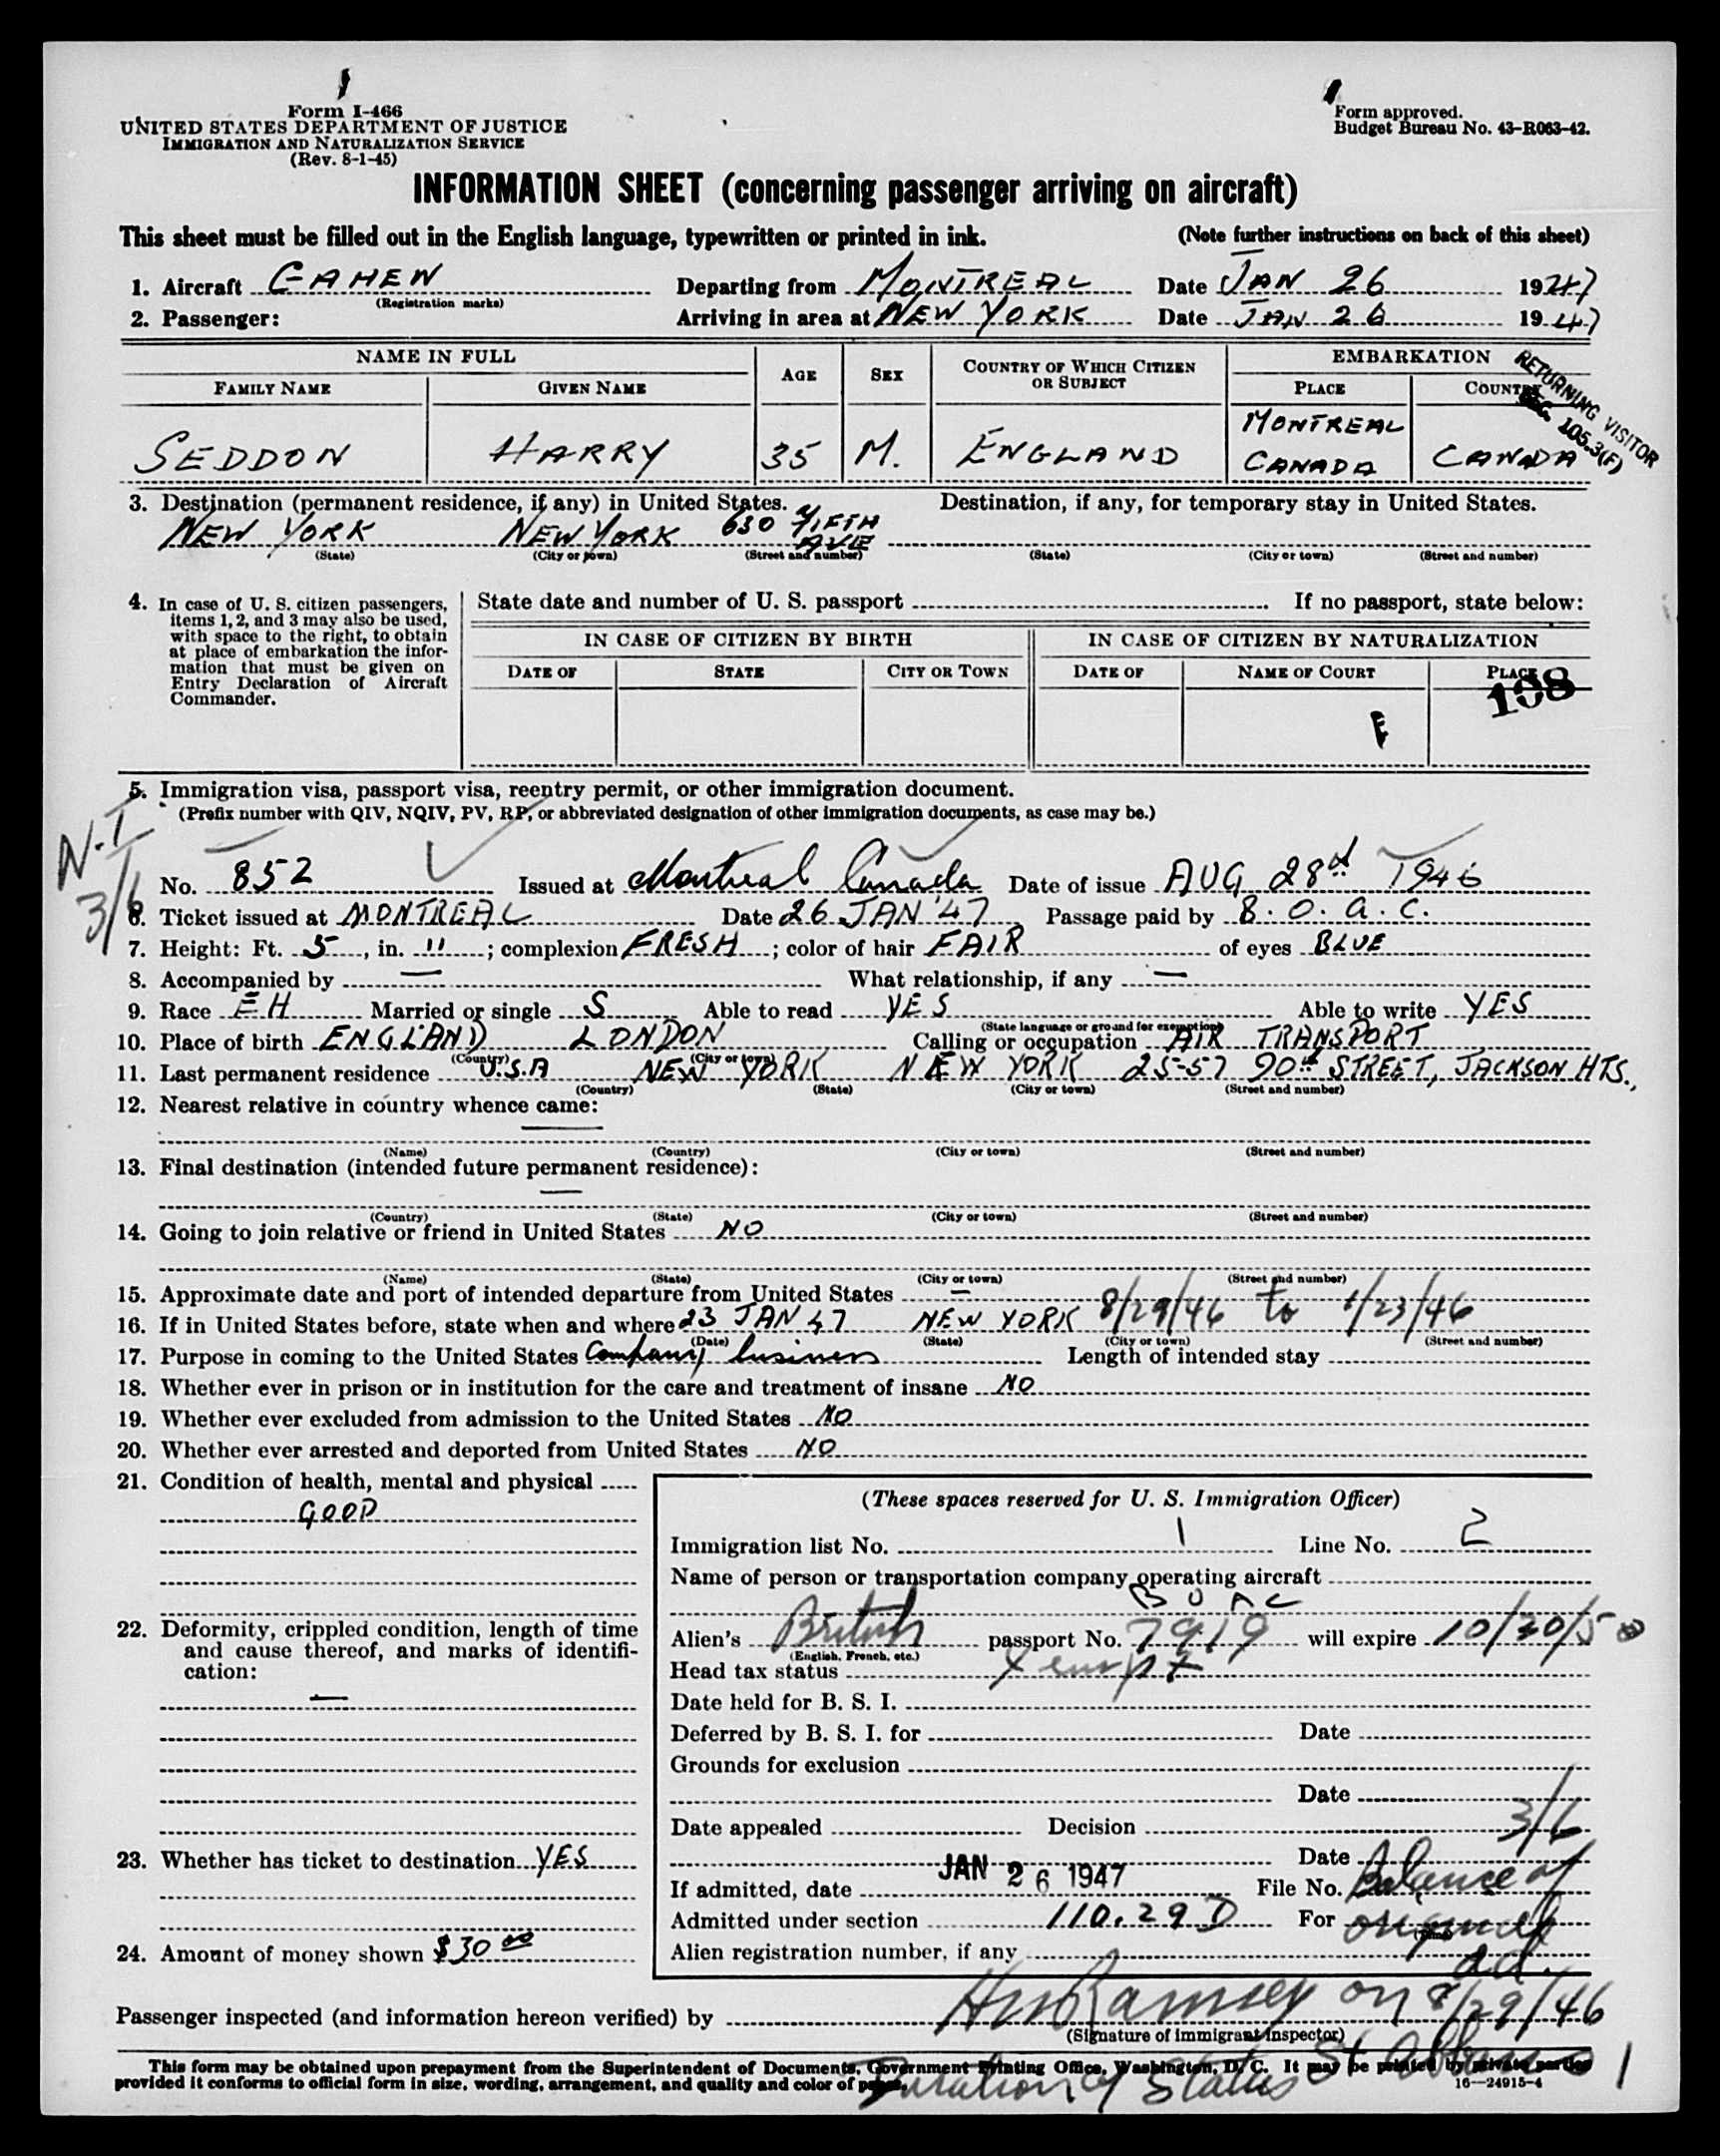 Form I-466
UNITED STATES DEPARTMENT OF JUSTICE
IMMIGRATION AND NATURALIZATION SERVICE
(Rev. 8-1-45)
Form approved.
Budget Bureau No. 43-R063-42.
INFORMATION SHEET (concerning passenger arriving on aircraft)
This sheet must be filled out in the English language, typewritten or printed in ink. (Note further instructions on back of this sheet)
1. Aircraft GAHEW Departing from MONTREAL Date JAN 26 1947
(Registration marks)
2. Passenger: Arriving in area at NEW YORK Date JAN 26 1947
NAME IN FULL AGE SEX COUNTRY OF WHICH CITIZEN OR SUBJECT EMBARKATION
FAMILY NAME GIVEN NAME PLACE COUNTRY
RETURNING VISITOR
SEC. 105.3(F)
SEDDON HARRY 35 M. ENGLAND MONTREAL CANADA CANADA
3. Destination (permanent residence, if any) in United States. Destination, if any, for temporary stay in United States.
NEW YORK NEW YORK 630 FIFTH AVE
(State) (City or town) (Street and number) (State) (City or town) (Street and number)
4. In case of U. S. citizen passengers,
items 1, 2, and 3 may also be used,
with space to the right, to obtain
at place of embarkation the infor-
mation that must be given on
Entry Declaration of Aircraft
Commander.
State date and number of U. S. passport If no passport, state below:
IN CASE OF CITIZEN BY BIRTH IN CASE OF CITIZEN BY NATURALIZATION
DATE OF STATE CITY OR TOWN DATE OF NAME OF COURT PLACE
198
5. Immigration visa, passport visa, reentry permit, or other immigration document.
(Prefix number with QIV, NQIV, PV, RP, or abbreviated designation of other immigration documents, as case may be.)
N-I
3/6
No. 852 Issued at Montreal Canada Date of issue AUG 28th 1946
6. Ticket issued at MONTREAL Date 26 JAN '47 Passage paid by B.O.A.C.
7. Height: Ft. 5, in. 11; complexion FRESH; color of hair FAIR of eyes BLUE
8. Accompanied by — What relationship, if any —
9. Race EH Married or single S Able to read YES Able to write YES
(State language or ground for exemption)
10. Place of birth ENGLAND LONDON Calling or occupation AIR TRANSPORT
(Country) (City or town)
11. Last permanent residence U.S.A NEW YORK NEW YORK 25-57 90th STREET, JACKSON HTS.,
(Country) (State) (City or town) (Street and number)
12. Nearest relative in country whence came:
—
(Name) (Country) (City or town) (Street and number)
13. Final destination (intended future permanent residence):
—
(Country) (State) (City or town) (Street and number)
14. Going to join relative or friend in United States NO
(Name) (State) (City or town) (Street and number)
15. Approximate date and port of intended departure from United States —
16. If in United States before, state when and where 23 JAN 47 NEW YORK 8/29/46 to 1/23/46
(Date) (State) (City or town) (Street and number)
17. Purpose in coming to the United States Company business Length of intended stay
18. Whether ever in prison or in institution for the care and treatment of insane NO
19. Whether ever excluded from admission to the United States NO
20. Whether ever arrested and deported from United States NO
21. Condition of health, mental and physical
GOOD
22. Deformity, crippled condition, length of time
and cause thereof, and marks of identifi-
cation:
—
23. Whether has ticket to destination YES
24. Amount of money shown $30 00
(These spaces reserved for U. S. Immigration Officer)
Immigration list No. 1 Line No. 2
Name of person or transportation company operating aircraft
B O A C
Alien's British passport No. 7919 will expire 10/30/50
(English, French, etc.)
Head tax status Xempt
Date held for B. S. I.
Deferred by B. S. I. for Date
Grounds for exclusion
Date
Date appealed Decision 3/6
Date
If admitted, date JAN 26 1947 File No. Balance of
Admitted under section 110.29 D For original
Alien registration number, if any ad.
Passenger inspected (and information hereon verified) by Ramsey on 8/29/46
(Signature of immigrant inspector)
St Albans
Duration of Status
This form may be obtained upon prepayment from the Superintendent of Documents, Government Printing Office, Washington, D. C. It may be printed by private parties
provided it conforms to official form in size, wording, arrangement, and quality and color of paper.
16—24915-4
1